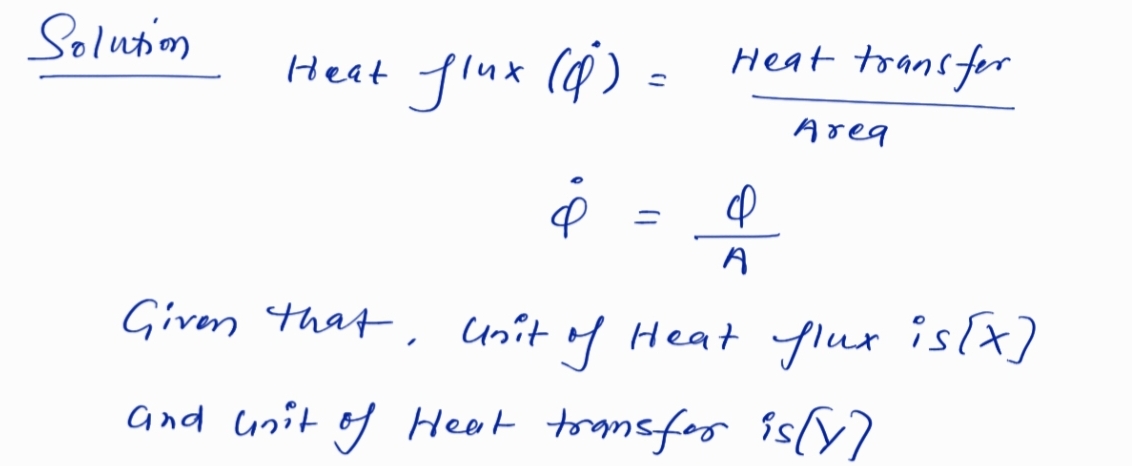 Solution Heat flux (φ̇) = Heat transfer / Area
φ̇ = φ / A
Given that, unit of Heat flux is [X]
and unit of Heat transfer is [Y]